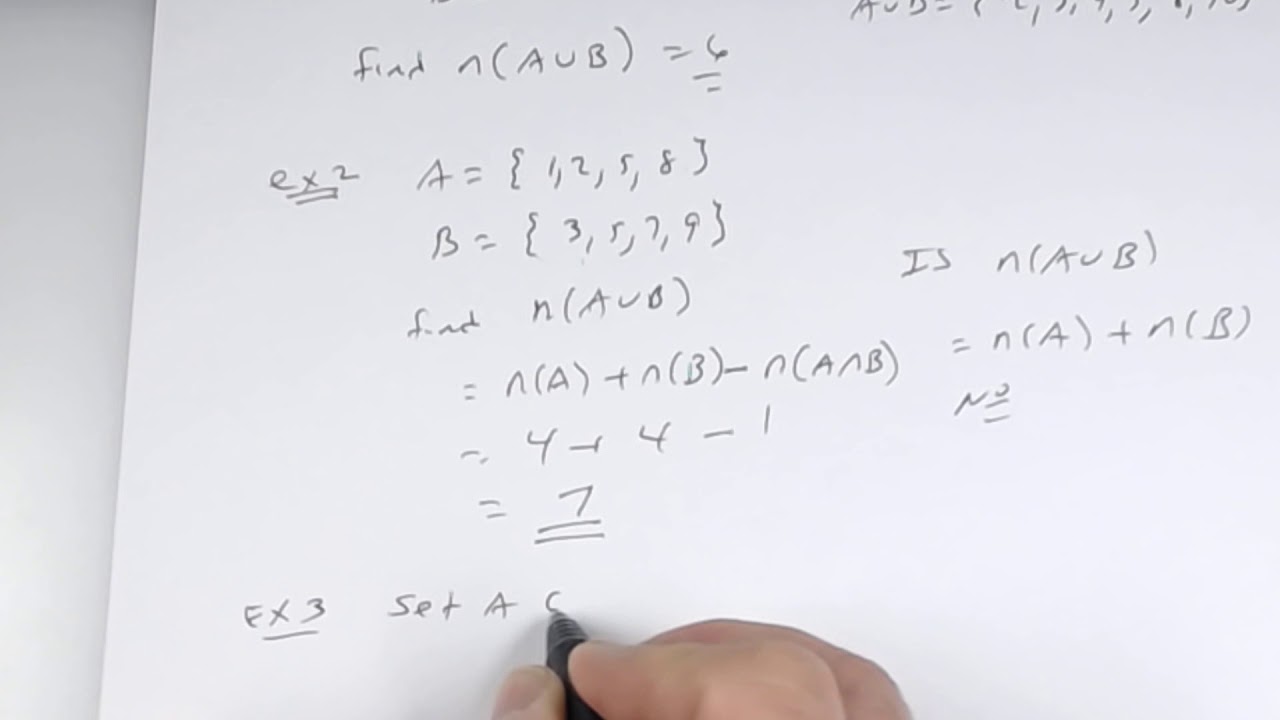 A∪B=
find n(A∪B) = 6
ex2 A = { 1,2, 5, 8 }
B = { 3, 5, 7, 9 }
find n(A∪B)
= n(A) + n(B) - n(A∩B)
= 4 + 4 - 1
= 7
IS n(A∪B)
= n(A) + n(B)
NO
EX 3 Set A